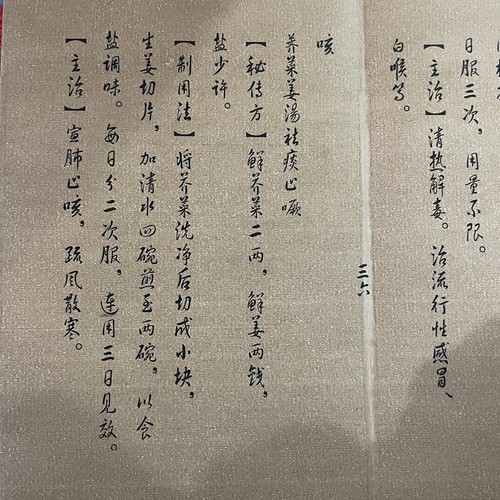 日服三次，用量不限。
【主治】清热解毒。治流行性感冒、
白喉等。
三六
咳
芥菜姜湯祛痰止嗽
【秘传方】鲜芥菜二两，鲜姜两钱，
盐少许。
【制用法】将芥菜洗净后切成小块，
生姜切片，加清水四碗煎至两碗，以食
盐调味。每日分二次服，连用三日见效。
【主治】宣肺止咳，疏风散寒。